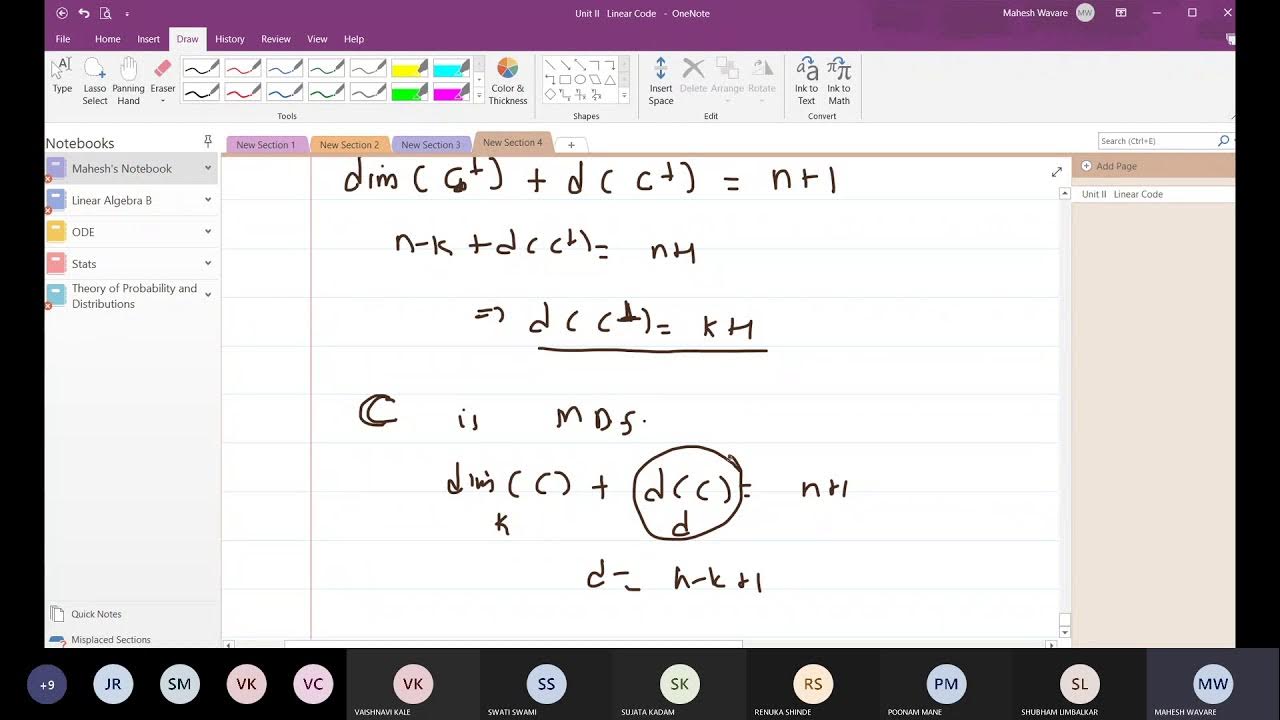 Unit II Linear Code - OneNote
Mahesh Wavare MW
File Home Insert Draw History Review View Help
Type Lasso Select Panning Hand Eraser
Color & Thickness
Insert Space Delete Arrange Rotate
Ink to Text Ink to Math
Tools Shapes Edit Convert
Notebooks
New Section 1 New Section 2 New Section 3 New Section 4 +
Search (Ctrl+E)
Mahesh's Notebook
Linear Algebra B
ODE
Stats
Theory of Probability and
Distributions
Quick Notes
Misplaced Sections
Add Page
Unit II Linear Code
dim(C⊥) + d(C⊥) = n+1
n-k + d(C⊥) = n+1
=> d(C⊥) = k+1
C is MDS.
dim(C) + d(C) = n+1
k d
d = n-k+1
+9 JR SM VK VC VK SS SK RS PM SL MW
VAISHNAVI KALE SWATI SWAMI SUJATA KADAM RENUKA SHINDE POONAM MANE SHUBHAM LIMBALKAR MAHESH WAVARE